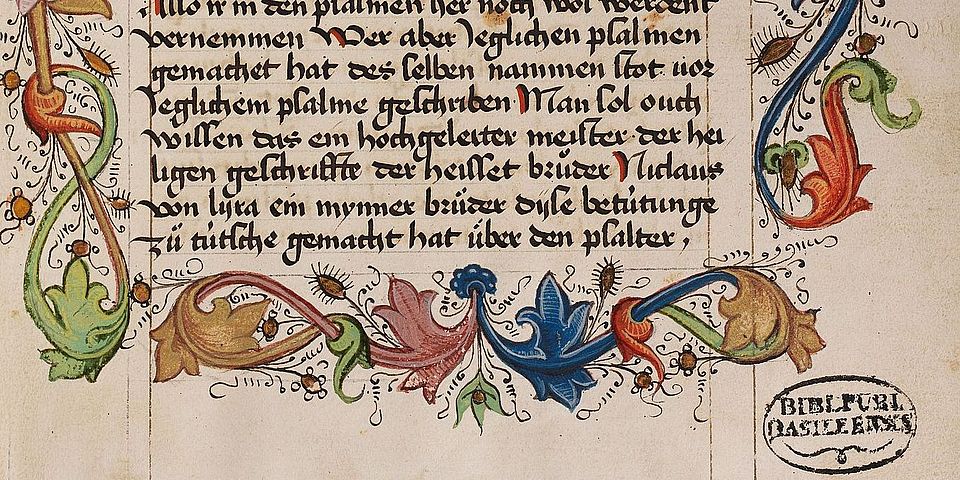 Also ir in den psalmen her noch wol werdent
vernemmen Wer aber Jeglichen psalmen
gemachet hat des selben nammen stot vor
Jeglichem psalme geschriben Man sol ouch
wissen das ein hochgelerter meister der hei
ligen geschrifft der heisset brůder Niclaus
von lyra ein mynner brůder dise betútunge
zů tútsche gemacht hat über den psalter,
BIBL. PUBL
BASILEENSIS